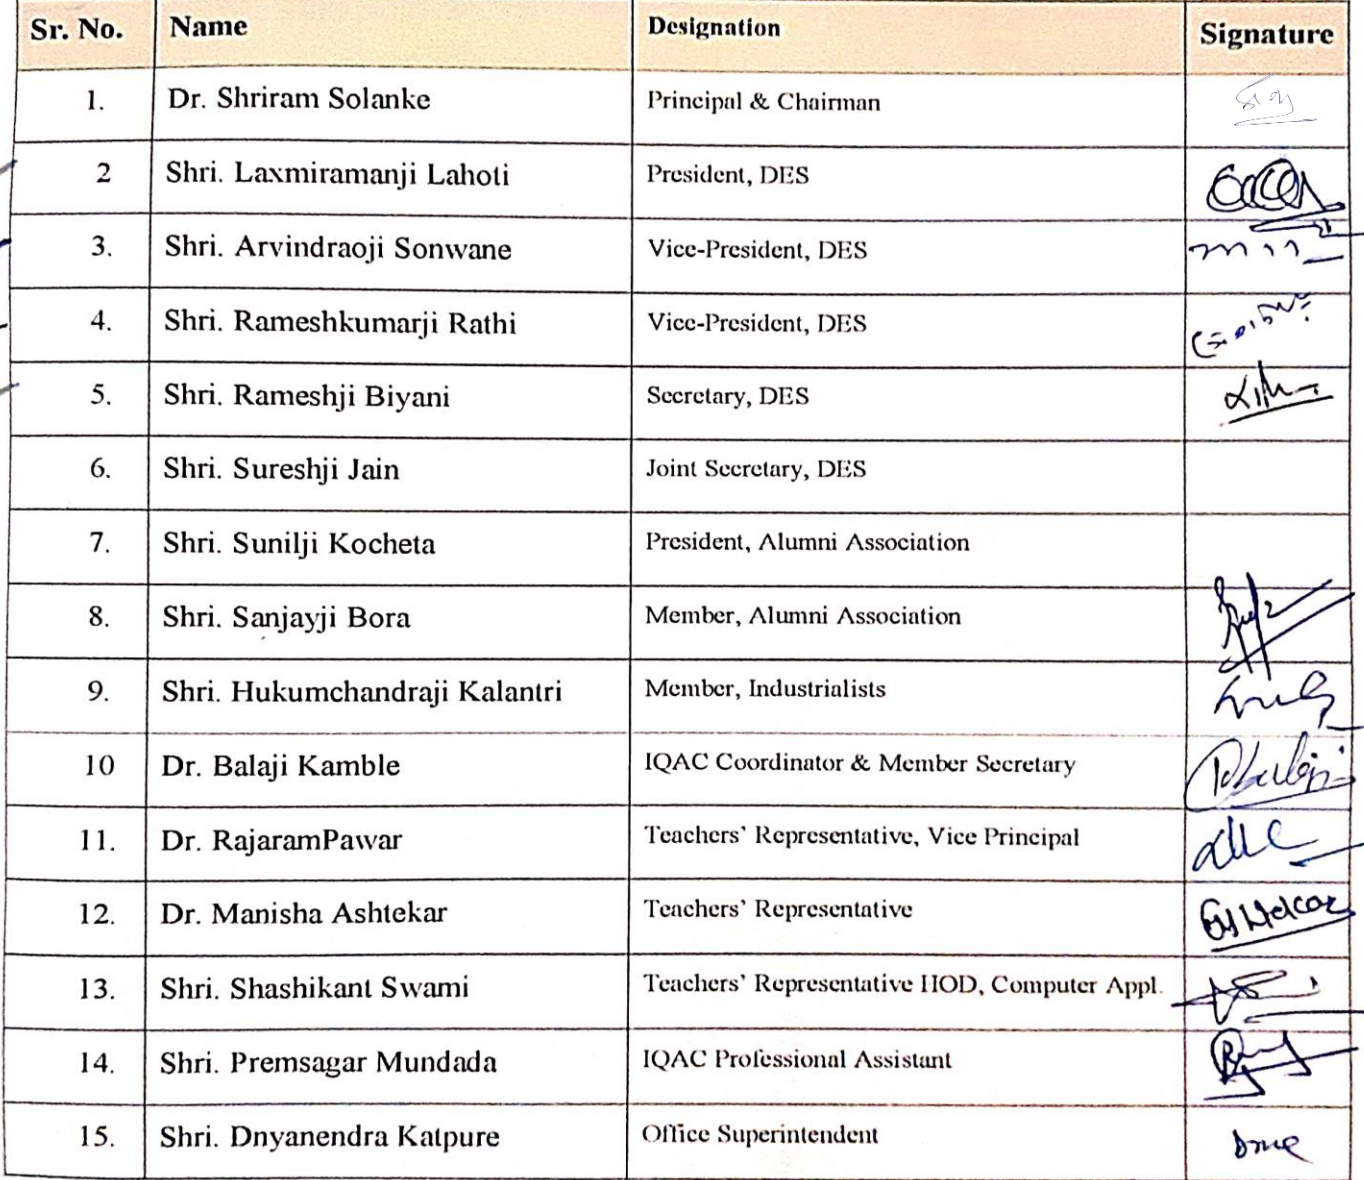 Sr. No. Name Designation Signature
1. Dr. Shriram Solanke Principal & Chairman
2 Shri. Laxmiramanji Lahoti President, DES
3. Shri. Arvindraoji Sonwane Vice-President, DES
4. Shri. Rameshkumarji Rathi Vice-President, DES
5. Shri. Rameshji Biyani Secretary, DES
6. Shri. Sureshji Jain Joint Secretary, DES
7. Shri. Sunilji Kocheta President, Alumni Association
8. Shri. Sanjayji Bora Member, Alumni Association
9. Shri. Hukumchandraji Kalantri Member, Industrialists
10 Dr. Balaji Kamble IQAC Coordinator & Member Secretary
11. Dr. RajaramPawar Teachers' Representative, Vice Principal
12. Dr. Manisha Ashtekar Teachers' Representative
13. Shri. Shashikant Swami Teachers' Representative HOD, Computer Appl.
14. Shri. Premsagar Mundada IQAC Professional Assistant
15. Shri. Dnyanendra Katpure Office Superintendent